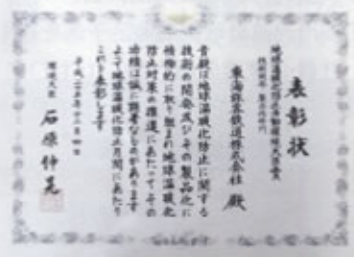 表彰状
地球温暖化防止活動環境大臣表彰
技術開発・製品化部門
東海旅客鉄道株式会社 殿
貴殿は地球温暖化防止に関する
技術の開発及びその製品化に
積極的に取り組まれ地球温暖化
防止対策の推進にあたってその
功績は誠に顕著なものがあります
よって地球温暖化防止月間にあたり
これを表彰します
平成二十五年十二月四日
環境大臣 石原伸晃